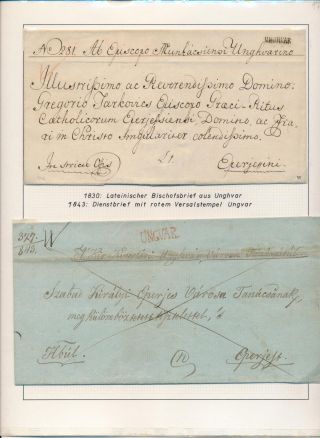 UNGHVAR
No 281. Ab Episcopo Munkácsiensi Unghvarino
Illustrissimo ac Reverendissimo Domino
Gregorio Tarkovics Episcopo Graeci-Ritus
Catholicorum Eperjessiensi Domino ac Fra
tri in Christo Singulariter colendissimo.
Eperjesini
1830: Lateinischer Bischofsbrief aus Unghvar
1843: Dienstbrief mit rotem Versalstempel Ungvar
UNGVAR
Szabad Királyi Eperjes Városa Tanácsának,
megkülönböztetett tisztelettel,
Hbúl
Eperjest